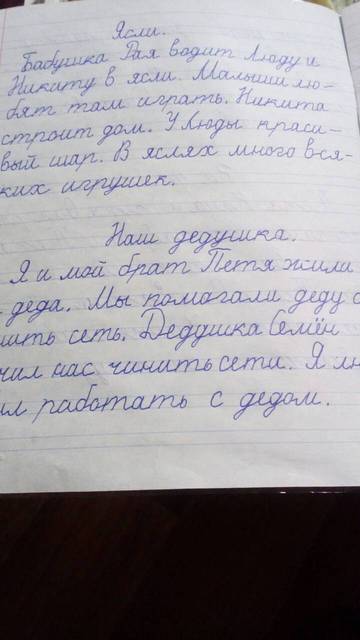 Ясли.
Бабушка Рая водит Люду и
Никиту в ясли. Малыши лю-
бят там играть. Никита
строит дом. У Люды краси-
вый шар. В яслях много вся-
ких игрушек.
Наш дедушка.
Я и мой брат Петя жили
деда. Мы помогали деду
сеть. Дедушка Семён
нас чинить сети. Я
работать с дедом.